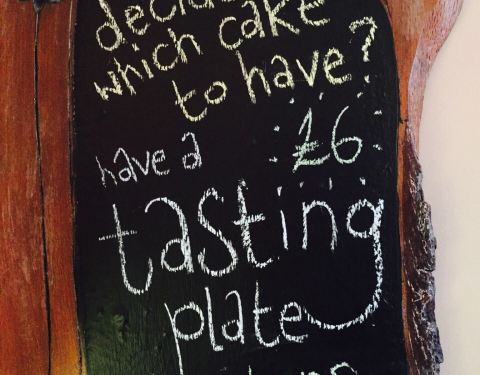 decide
which cake
to have?
have a £6
tasting
plate